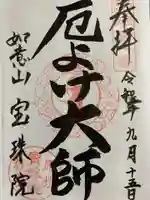 奉拝
令和 年 九月十五日
厄よけ大師
如意山 宝珠院